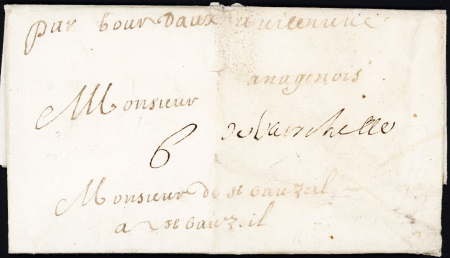 par bourdaux villeneuve
anagenois
Monsieur
6 de Larochelle
Monsieur de st bauzeil
a st bauzeil